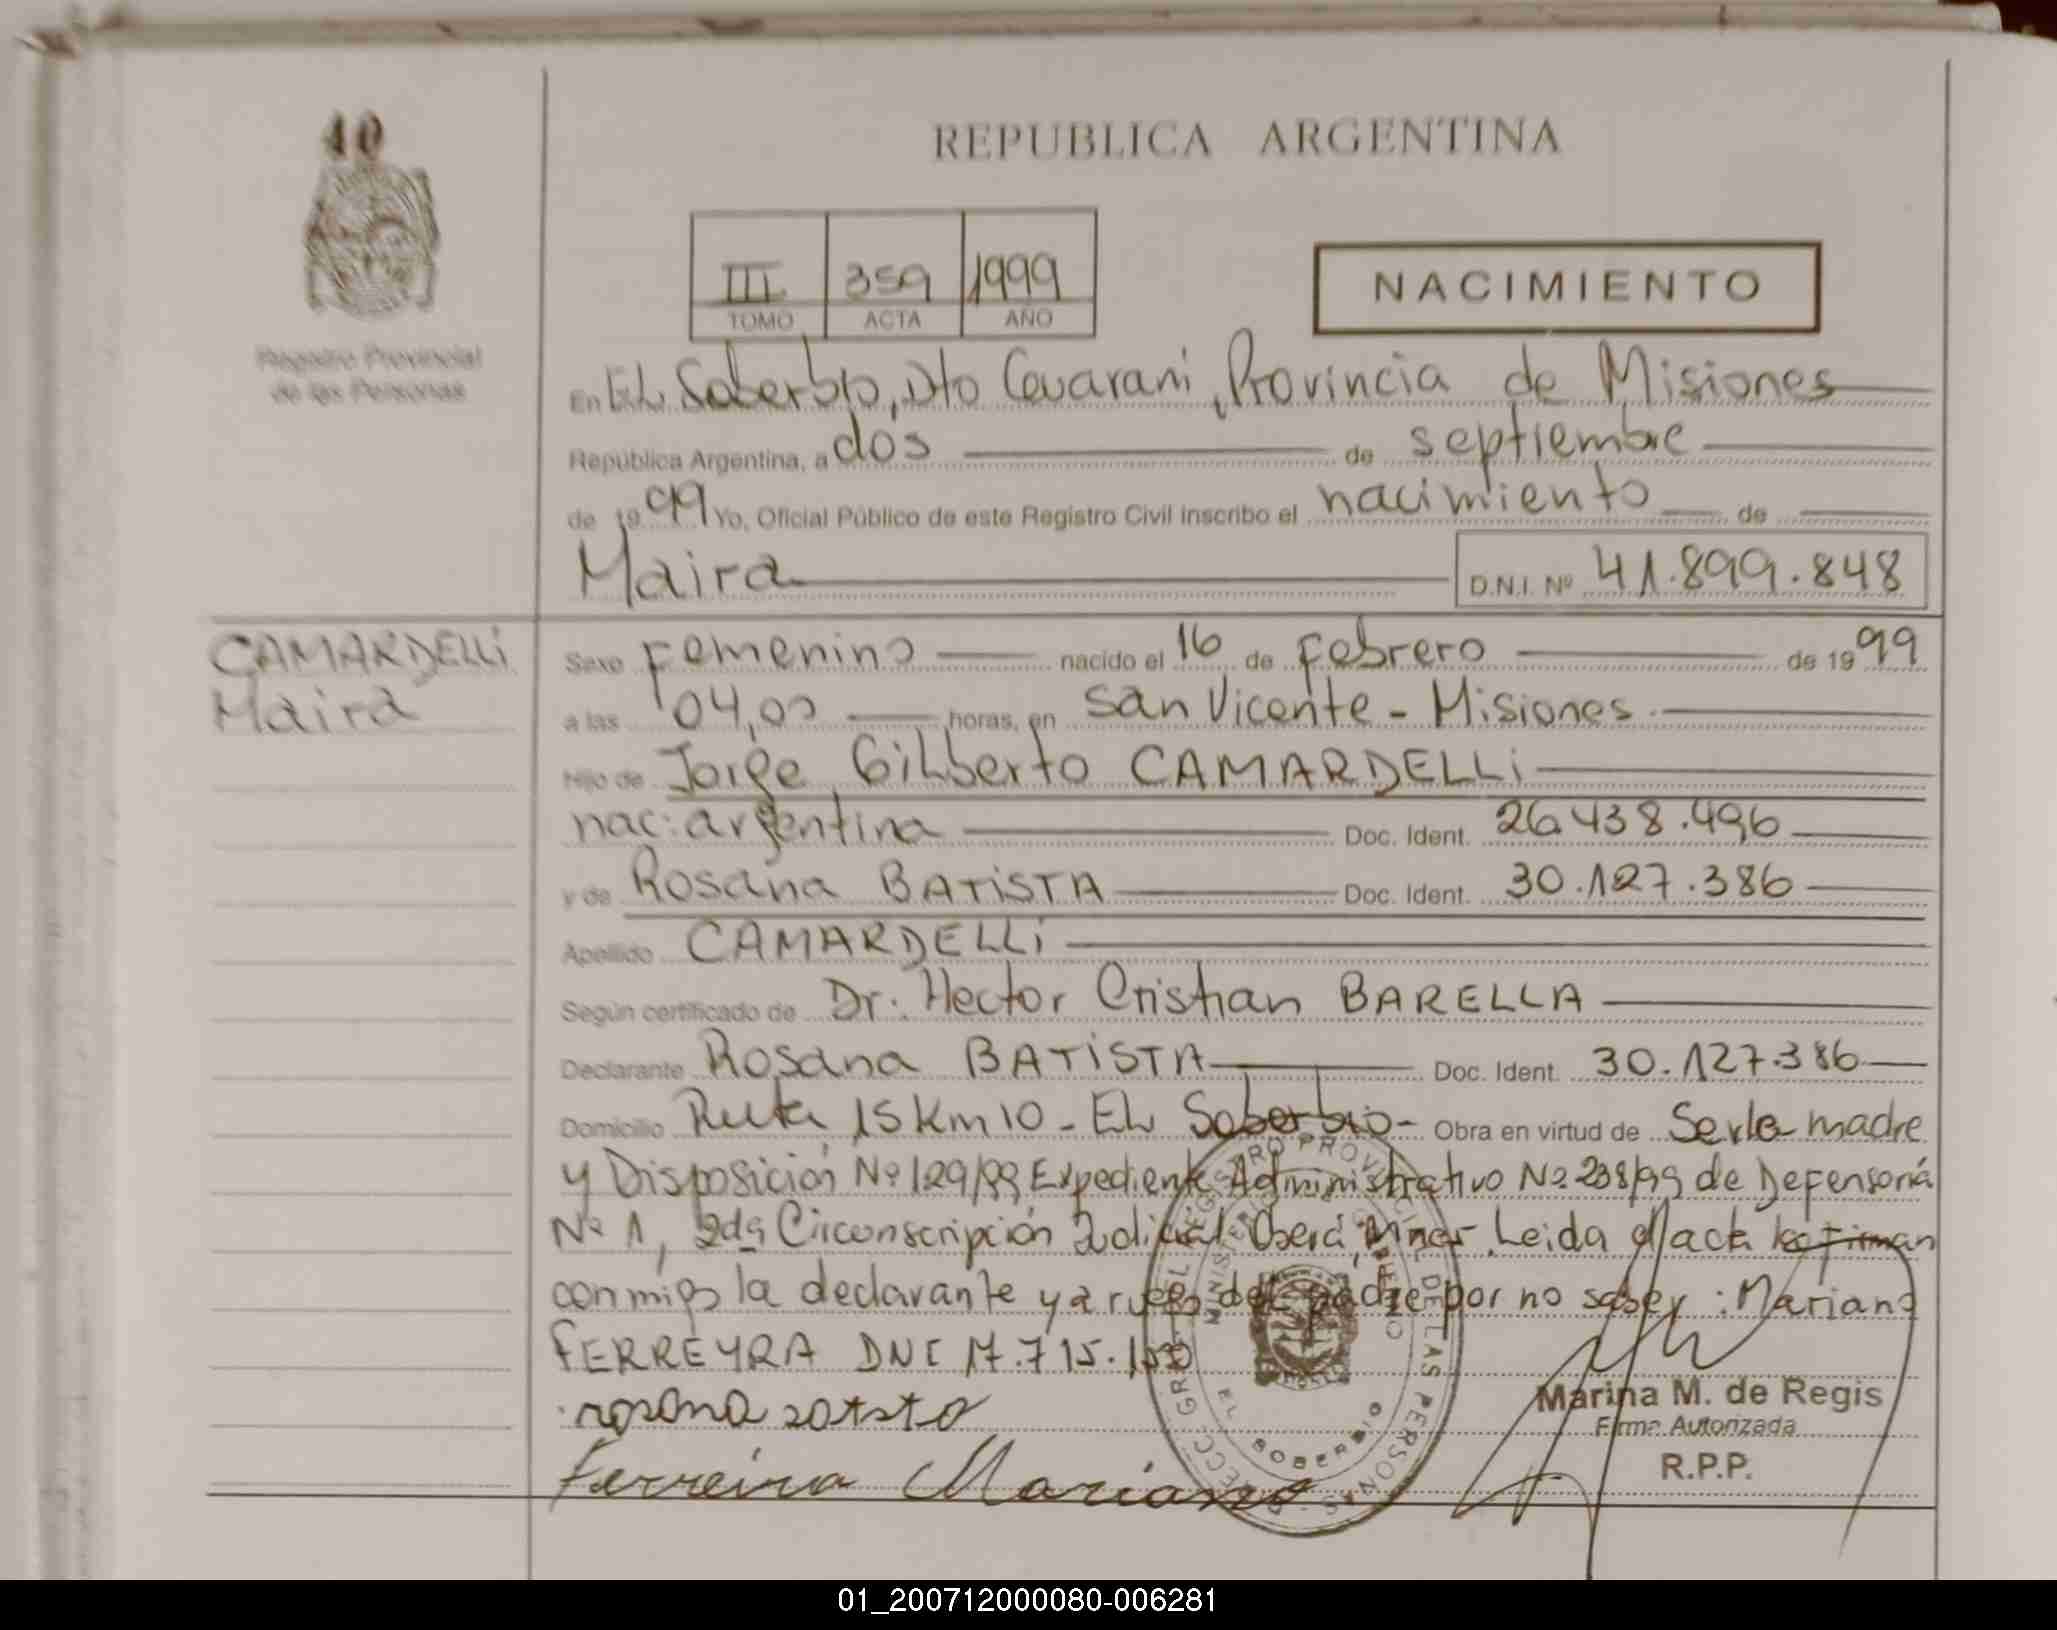 40
REPUBLICA ARGENTINA
III 359 1999
TOMO ACTA AÑO
NACIMIENTO
Registro Provincial
de las Personas
En EL Soberbio, Dto Guarani, Provincia de Misiones
República Argentina, a dos de septiembre
de 1999 Yo, Oficial Público de este Registro Civil inscribo el nacimiento de
Maira D.N.I. Nº 41.899.848
CAMARDELLi
Maira
Sexo Femenino nacido el 16 de Febrero de 1999
a las 04,00 horas, en San Vicente - Misiones
Hijo de Jorge Gilberto CAMARDELLi
nac: argentina Doc. Ident. 26.438.496
y de Rosana BATiSTA Doc. Ident. 30.127.386
Apellido CAMARDELLi
Según certificado de Dr. Hector Cristian BARELLA
Declarante Rosana BATiSTA Doc. Ident. 30.127.386
Domicilio Ruta 15 Km 10 - EL Soberbio - Obra en virtud de Ser la madre
y Disposición Nº 129/99 Expediente Administrativo Nº 238/99 de Defensoria
Nº 1, 2da Circonscripción Judicial Oberá, Mnes. Leida el Acta la Firman
conmigo la declarante y a ruego del padre por no saber: Mariano
FERREYRA DNI 17.715.
rosana
Ferreira Mariano
REGISTRO PROVINCIAL DE LAS PERSONAS
MINISTERIO DE GOBIERNO
EL SOBERBIO
Marina M. de Regis
Firma Autorizada
R.P.P.
01_200712000080-006281